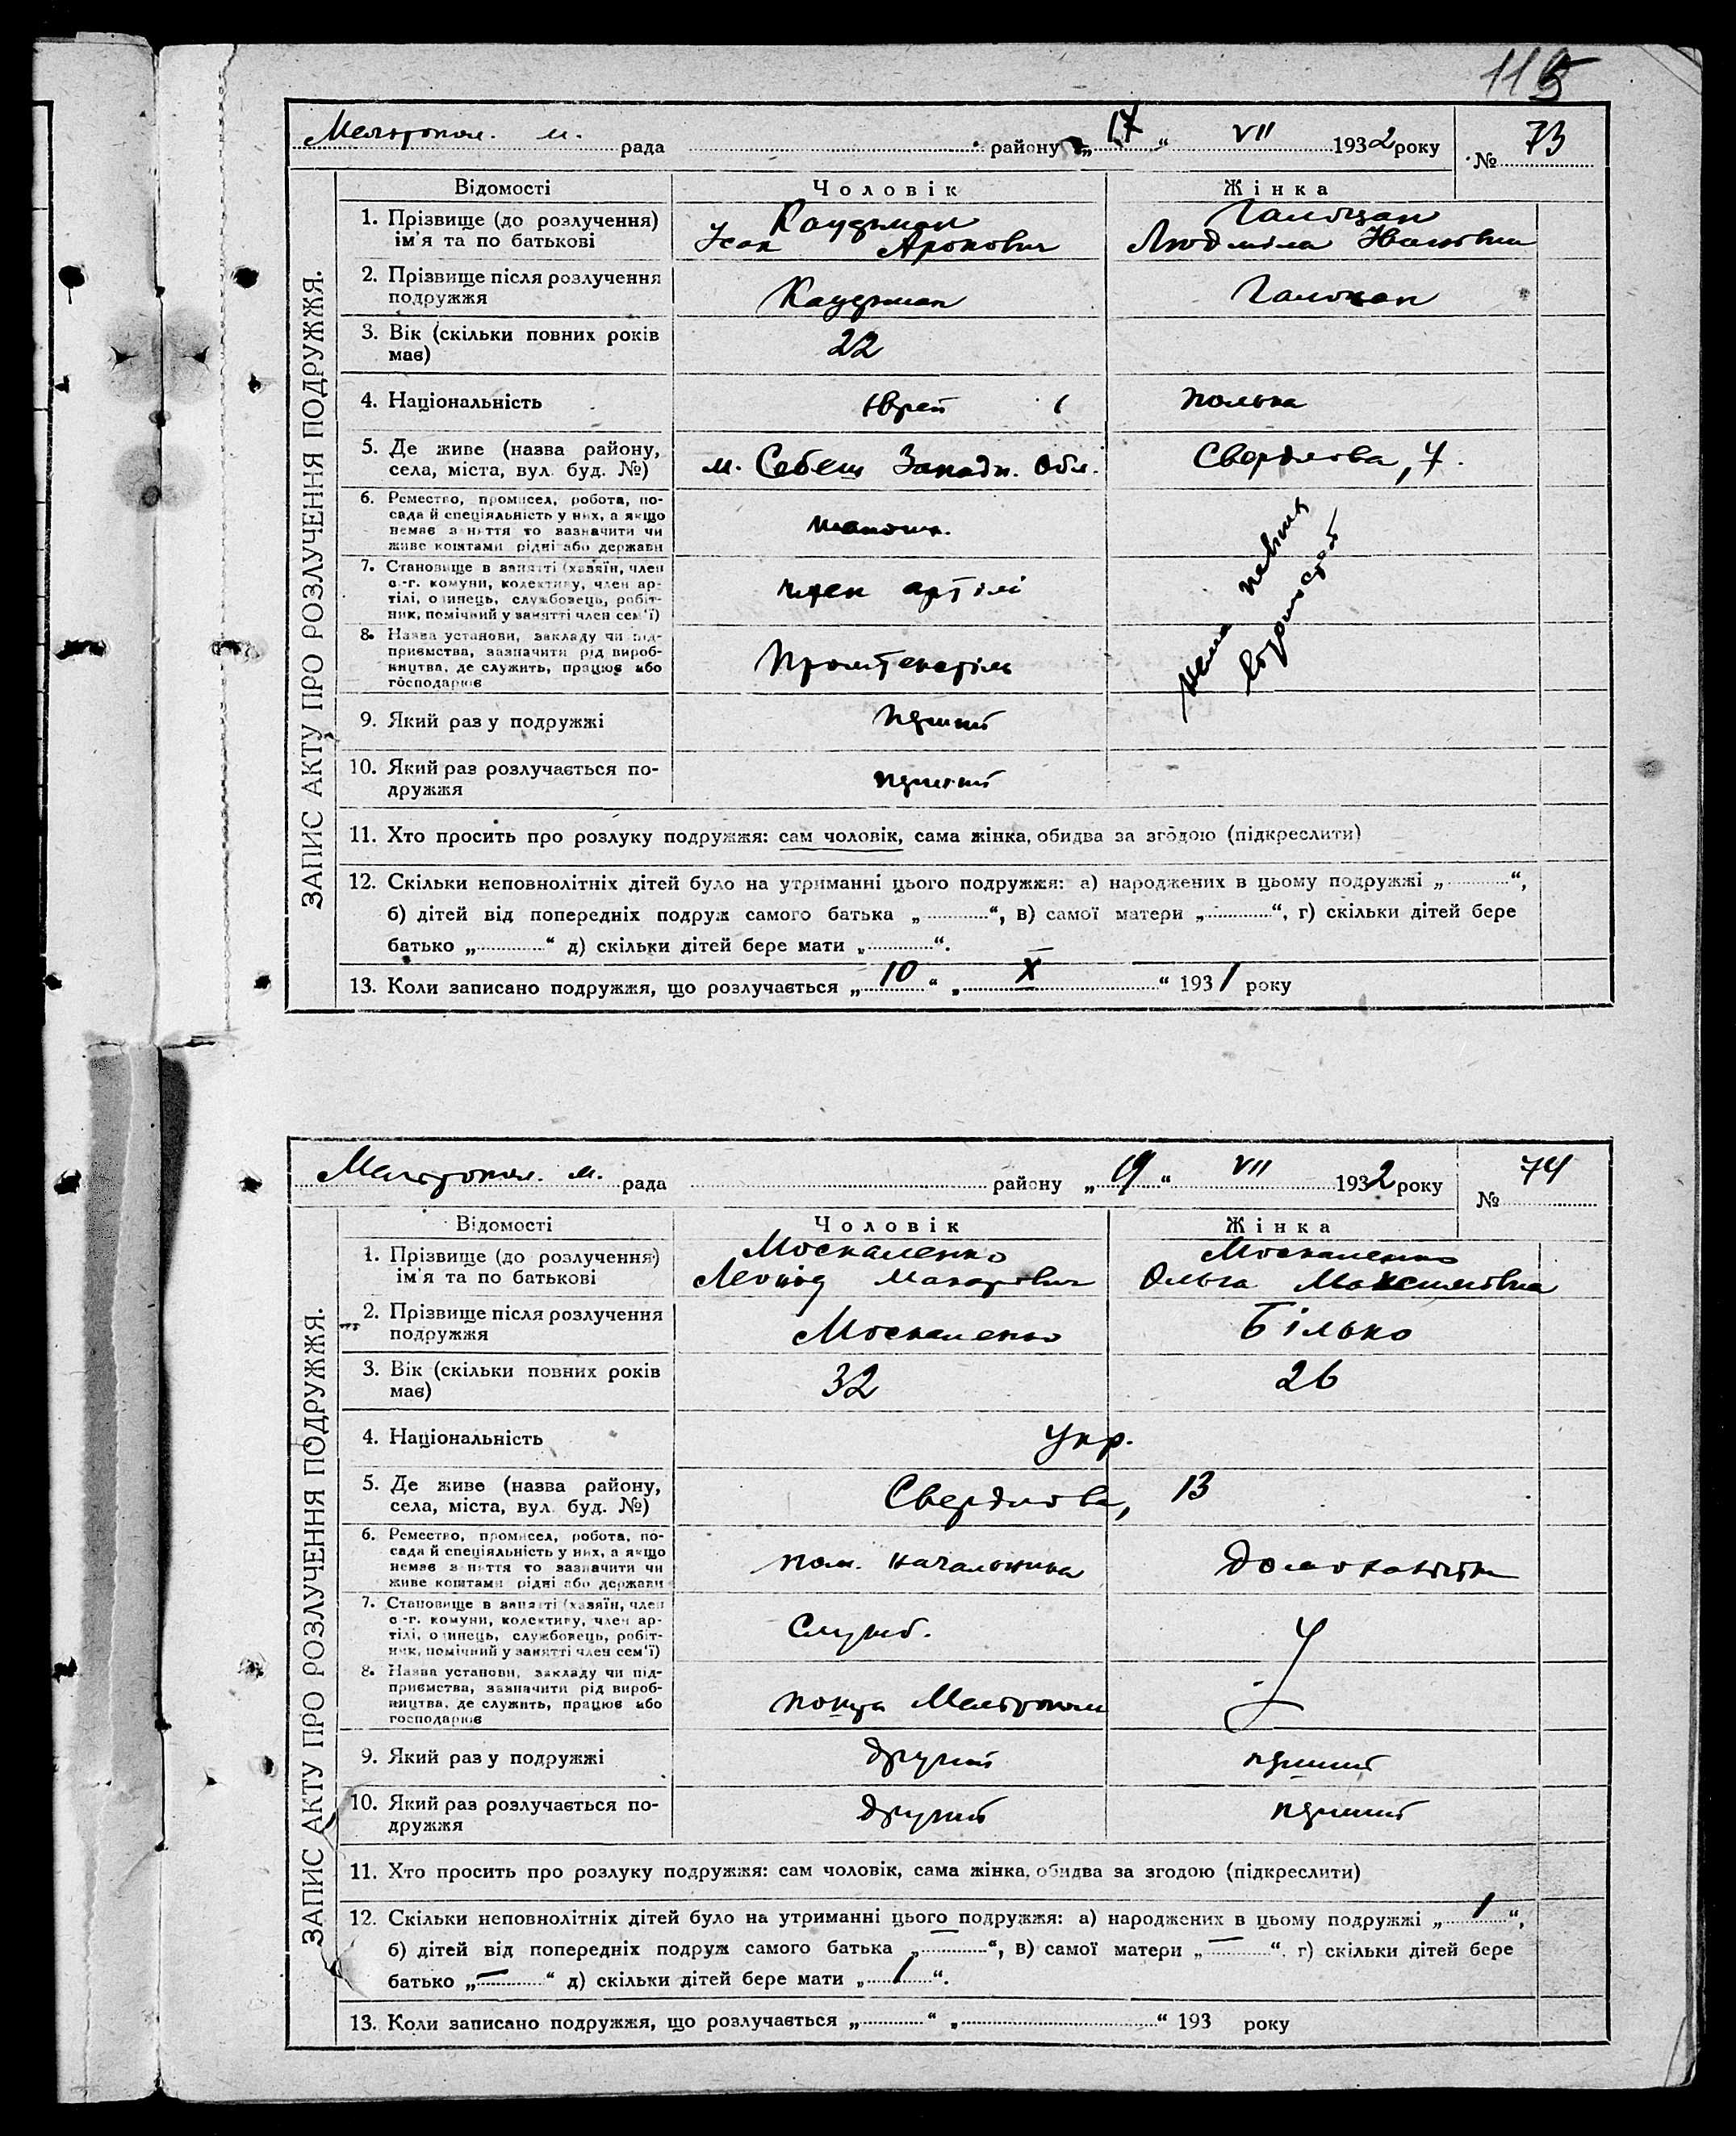 115
Мелітопол. м. рада району „17“ VII 1932 року № 73
ЗАПИС АКТУ ПРО РОЗЛУЧЕННЯ ПОДРУЖЖЯ.
Відомості Чоловік Жінка
1. Прізвище (до розлучення)
ім'я та по батькові
Ісак Аронович
Людміла Іванівна
2. Прізвище після розлучення
подружжя
3. Вік (скільки повних років
має)
22
4. Національність
єврей полька
5. Де живе (назва району,
села, міста, вул. буд. №)
м. Себеш Западн. Обл. Свердлова, 7.
6. Ремество, промисел, робота, по-
сада й спеціяльність у них, а якщо
немає заняття то зазначити чи
живе коштами рідні або держави
7. Становище в занятті (хазяїн, член
с.-г. комуни, колективу, член ар-
тілі, одинець, службовець, робіт-
ник, помічний у занятті член сем'ї)
член артілі
8. Назва установи, закладу чи під-
приємства, зазначити рід вироб-
ництва, де служить, працює або
господарює
нема певних
відомостей
9. Який раз у подружжі
перший
10. Який раз розлучається по-
дружжя
перший
11. Хто просить про розлуку подружжя: сам чоловік, сама жінка, обидва за згодою (підкреслити)
12. Скільки неповнолітніх дітей було на утриманні цього подружжя: а) народжених в цьому подружжі „ “,
б) дітей від попередніх подруж самого батька „ “, в) самої матери „ “, г) скільки дітей бере
батько „ “ д) скільки дітей бере мати „ “.
13. Коли записано подружжя, що розлучається „10“ „X“ 1931 року
Мелітопол. м. рада району „19“ VII 1932 року № 74
ЗАПИС АКТУ ПРО РОЗЛУЧЕННЯ ПОДРУЖЖЯ.
Відомості Чоловік Жінка
1. Прізвище (до розлучення)
ім'я та по батькові
Москаленко Москаленко
Леонід Макарович Ольга Максимівна
2. Прізвище після розлучення
подружжя
Москаленко Білько
3. Вік (скільки повних років
має)
32 26
4. Національність
укр.
5. Де живе (назва району,
села, міста, вул. буд. №)
Свердлова, 13
6. Ремество, промисел, робота, по-
сада й спеціяльність у них, а якщо
немає заняття то зазначити чи
живе коштами рідні або держави
пом. начальника
7. Становище в занятті (хазяїн, член
с.-г. комуни, колективу, член ар-
тілі, одинець, службовець, робіт-
ник, помічний у занятті член сем'ї)
служб.
8. Назва установи, закладу чи під-
приємства, зазначити рід вироб-
ництва, де служить, працює або
господарює
пошта Мелітополь
9. Який раз у подружжі
другий перший
10. Який раз розлучається по-
дружжя
другий перший
11. Хто просить про розлуку подружжя: сам чоловік, сама жінка, обидва за згодою (підкреслити)
12. Скільки неповнолітніх дітей було на утриманні цього подружжя: а) народжених в цьому подружжі „1“,
б) дітей від попередніх подруж самого батька „—“, в) самої матери „—“. г) скільки дітей бере
батько „—“ д) скільки дітей бере мати „1“.
13. Коли записано подружжя, що розлучається „ “ „ “ 193 року